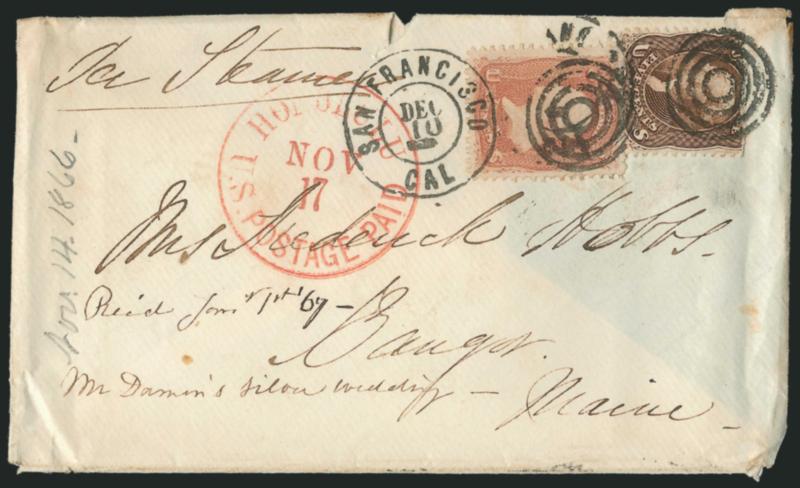 Per Steamer
SAN FRANCISCO
DEC
10
CAL
HONOLULU
U.S.
NOV
17
POSTAGE PAID
Mrs Frederick Hobbs.
Recd Jany 1st /67 —
Bangor.
Mr Damon's silver wedding —
Maine —
Nov. 14. 1866 —